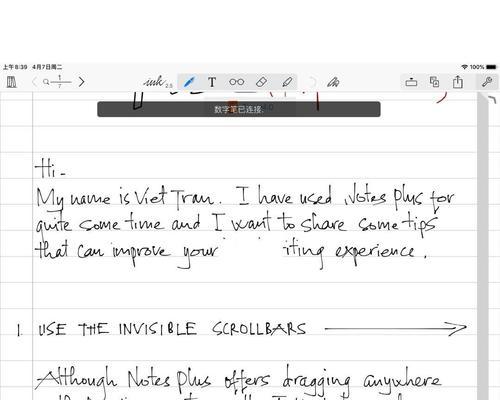 上午8:39 4月7日周二
100%
1
7
ink 2.5
T
数字笔已连接.
Hi-
My name is Viet Tran. I have used Notes Plus for
quite some time and I want to share some tips
that can improve your iting experience.
1. USE THE INVISIBLE SCROLLBARS
Although Notes Plus offers dragging anywhere